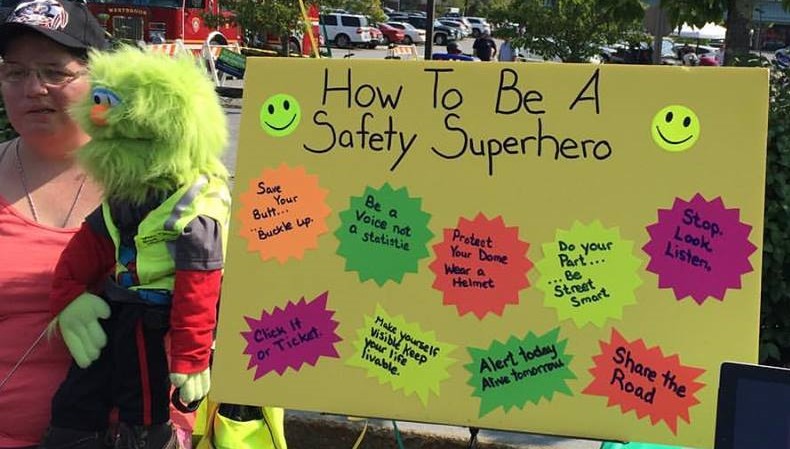 How To Be A
Safety Superhero
Save
Your
Butt...
..Buckle up.
Be a
Voice not
a statistic
Protect
Your Dome
Wear a
Helmet
Do your
Part...
...Be
Street
Smart
Stop.
Look.
Listen.
Click It
or Ticket.
Make yourself
Visible keep
your life
livable.
Alert today
Alive tomorrow
Share the
Road